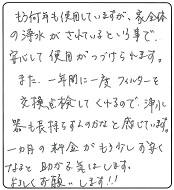 もう何年も使用していますが、家全体
の浄水がされているという事で、
安心して使用がつづけられます。
また、一年間に一度フィルターを
交換点検してくれるので、浄水
器も長持ちするんのかなと感じています。
一カ月の料金がもう少し安く
なると助かる気はします。
よろしくお願いします!!